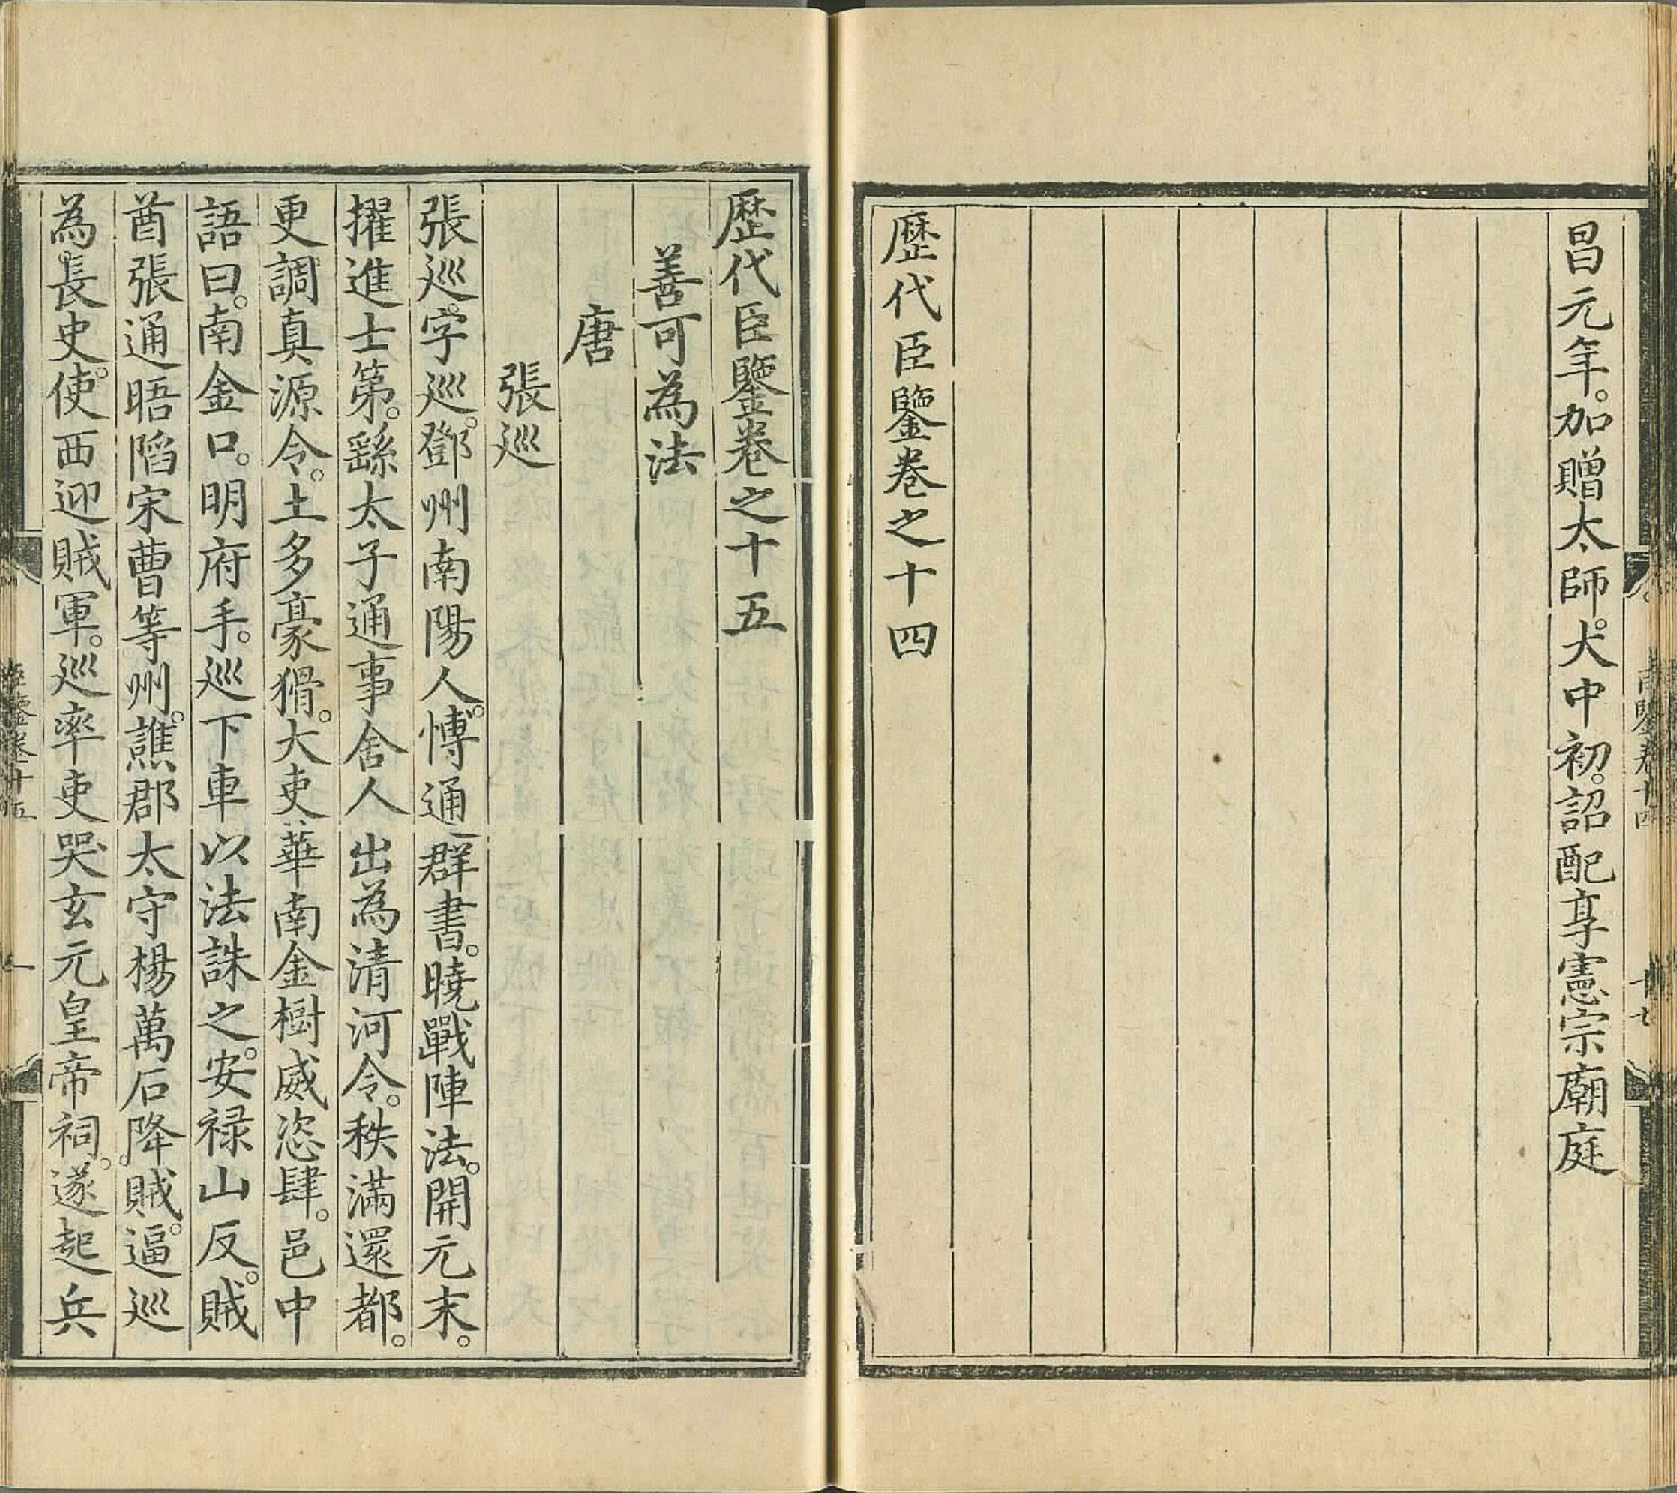 昌元年。加贈太師。大中初。詔配享憲宗廟庭
歷代臣鑒卷之十四
歷代臣鑒卷之十五
善可為法
唐
張巡
張巡。字巡。鄧州南陽人。博通群書。曉戰陣法。開元末。
擢進士第。繇太子通事舍人出為清河令。秩滿還都。
更調真源令。土多豪猾。大吏華南金樹威恣肆。邑中
語曰。南金口。明府手。巡下車以法誅之。安祿山反。賊
酋張通晤陷宋曹等州。譙郡太守楊萬石降賊。逼巡
為長史。使西迎賊軍。巡率吏哭玄元皇帝祠。遂起兵
臣鑒卷十五
一